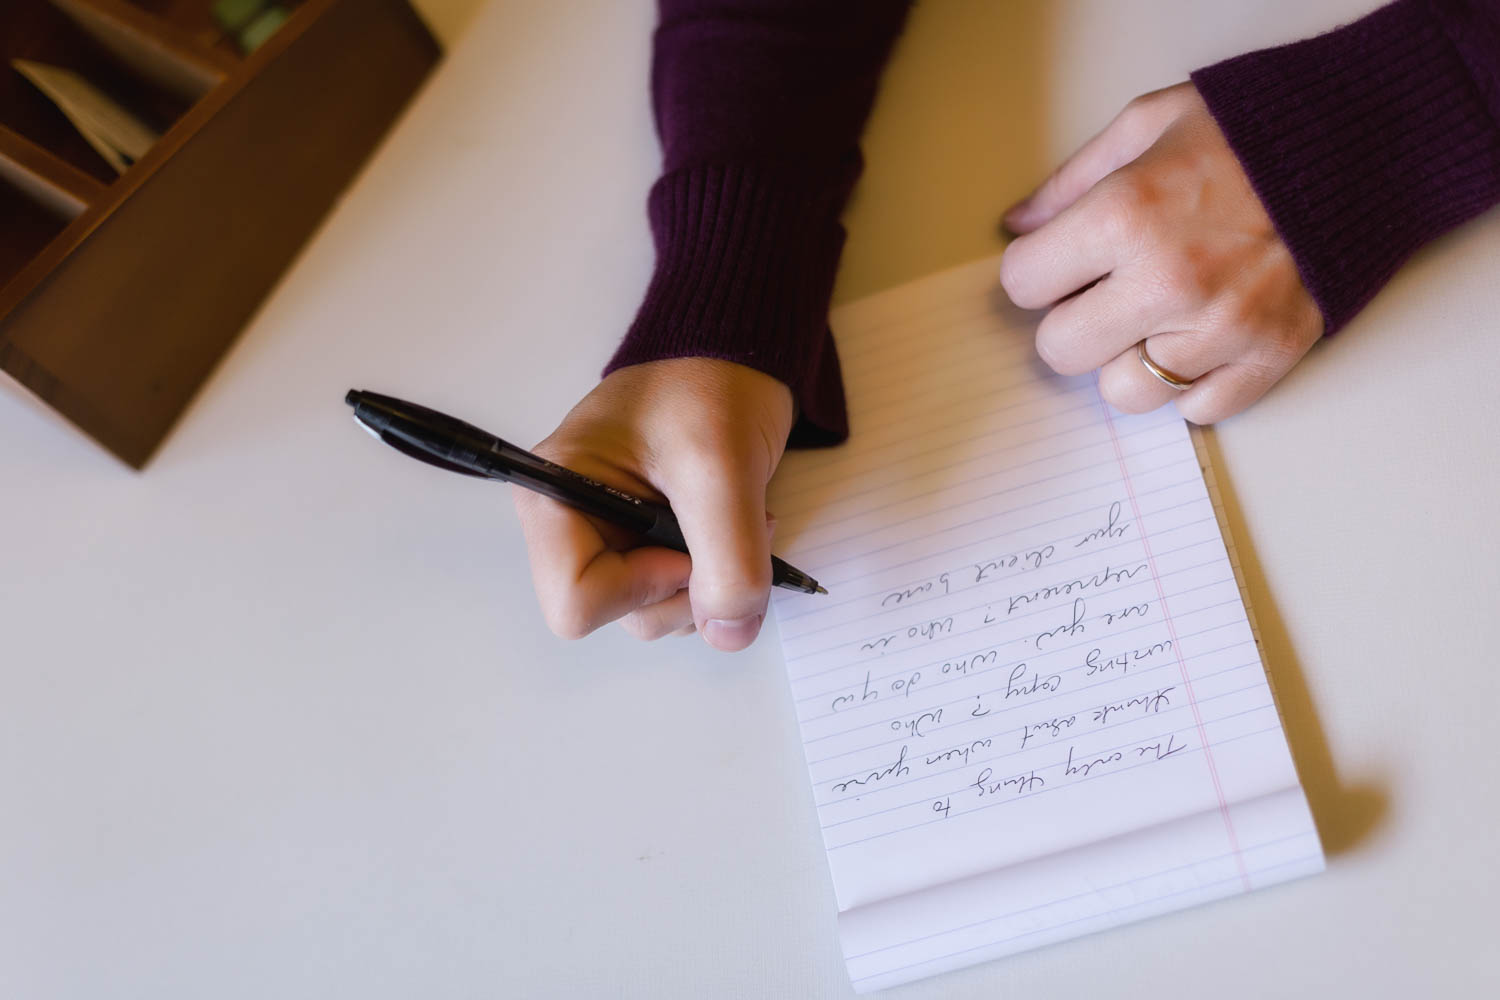 The only thing to
think about when you're
writing copy? Who
are you. Who do you
represent? Who is
your client base